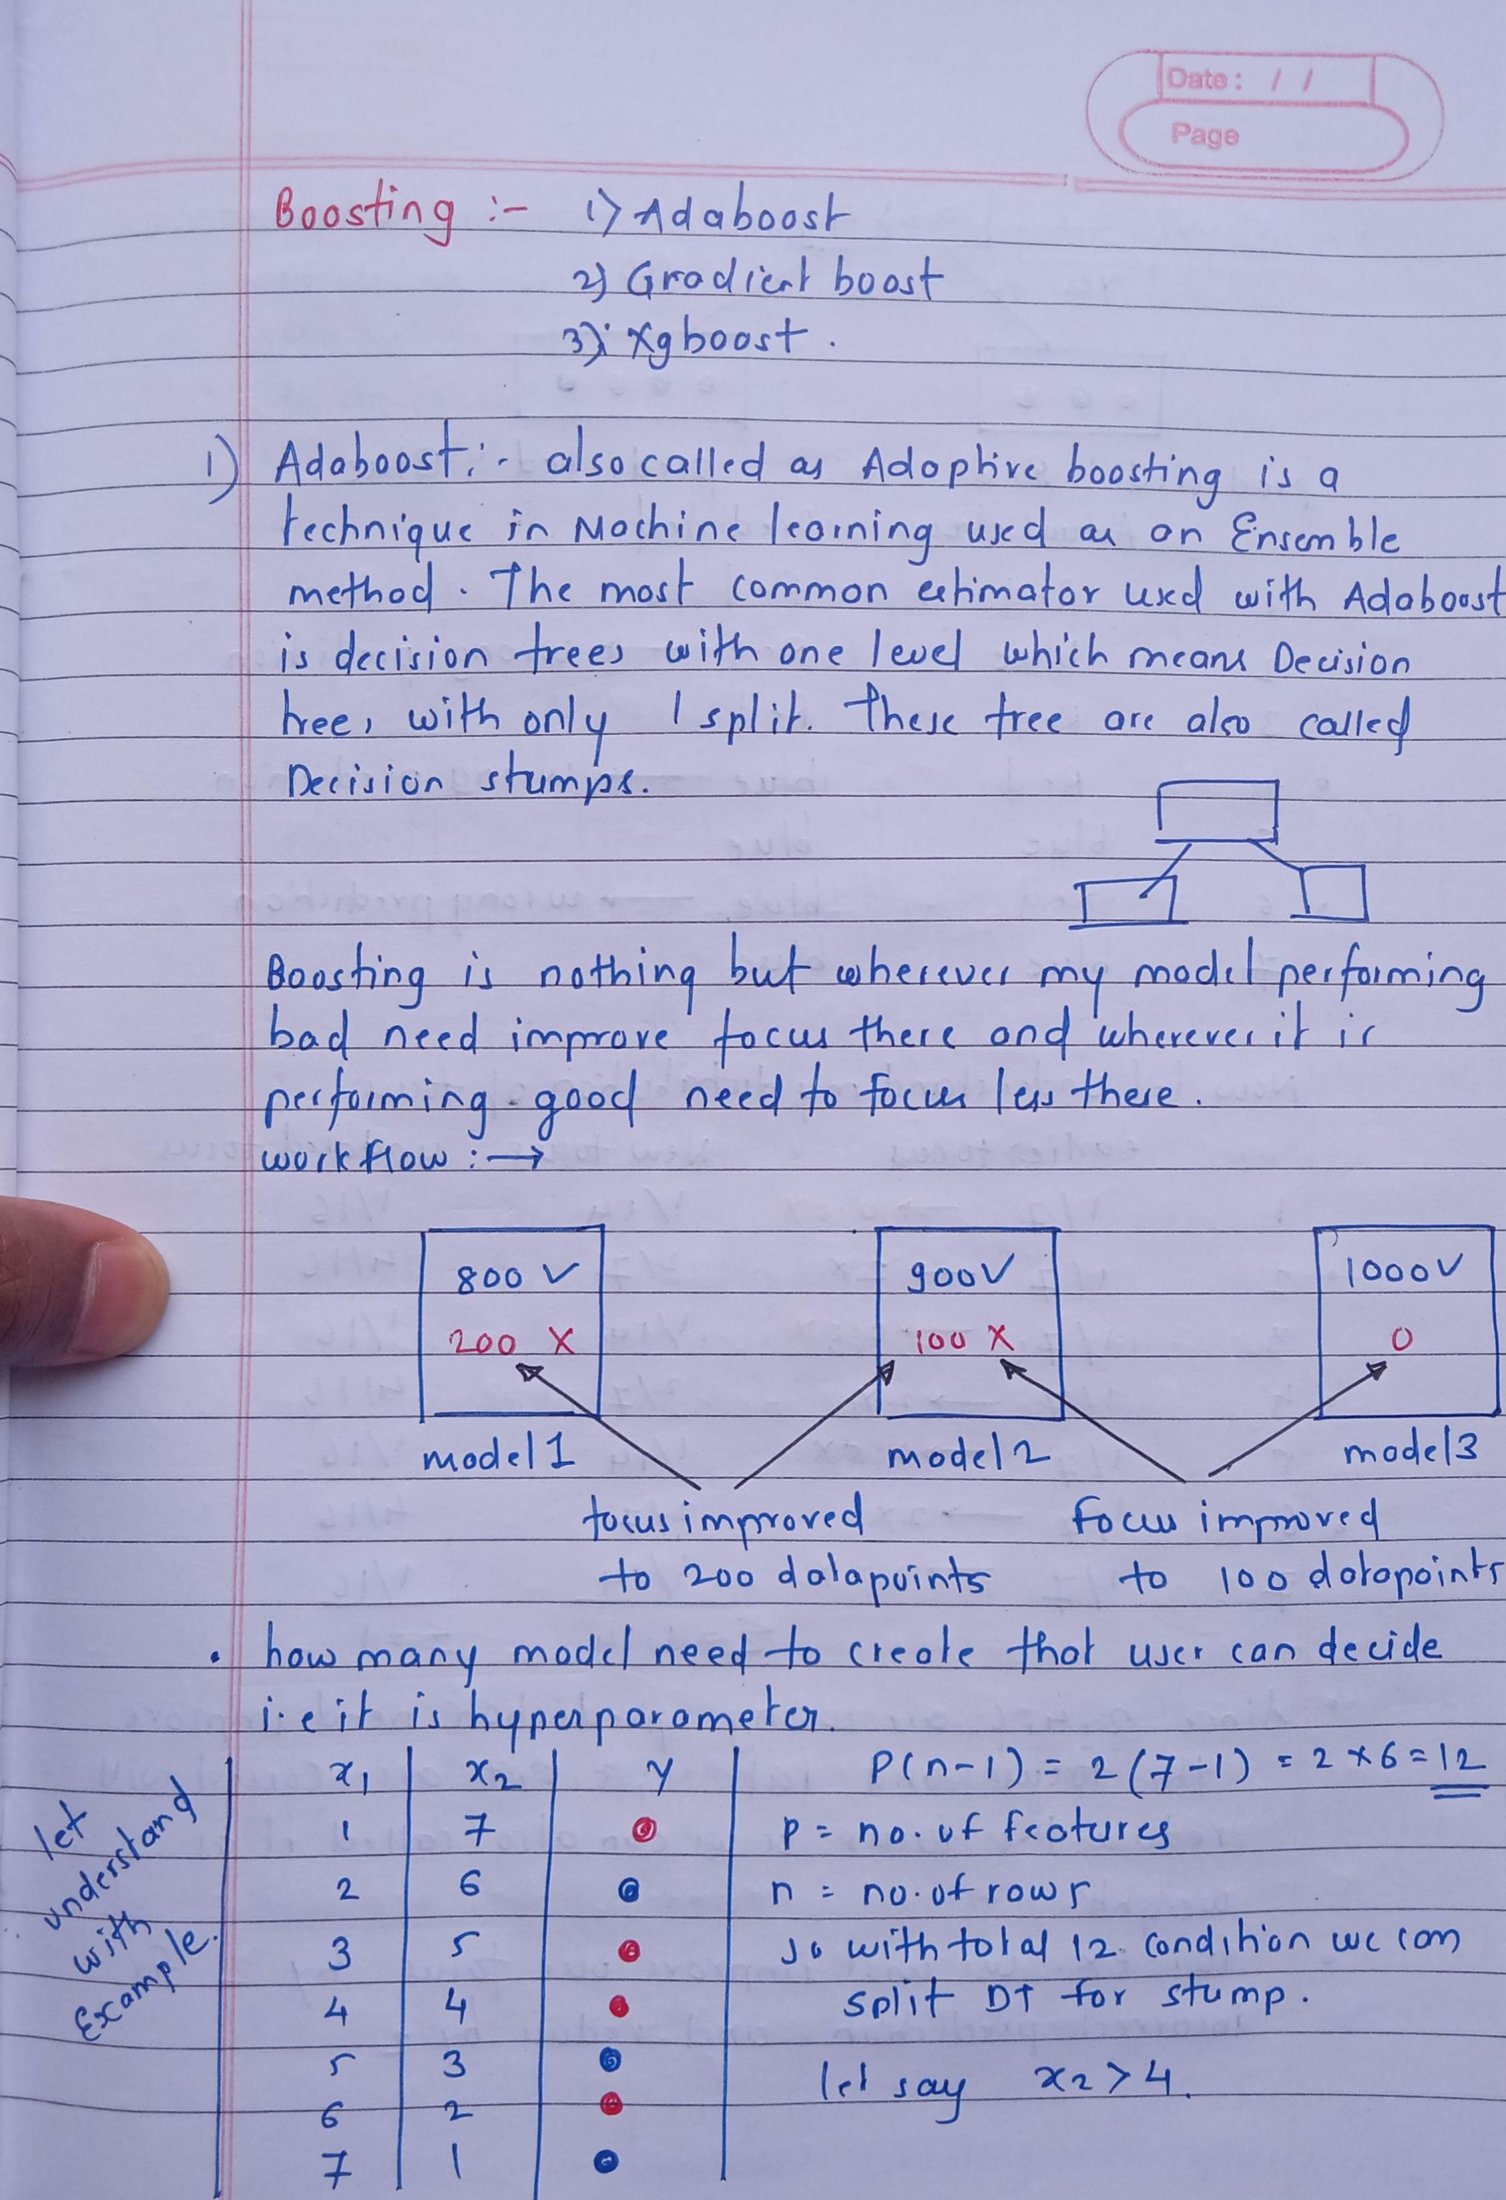 Date : / /
Page
Boosting :- 1) Adaboost
2) Gradient boost
3) Xgboost.
1) Adaboost :- also called as Adaptive boosting is a
technique in Machine learning used as an Ensemble
method. The most common estimator used with Adaboost
is decision trees with one level which means Decision
trees with only 1 split. These tree are also called
Decision stumps.
Boosting is nothing but wherever my model performing
bad need improve focus there and wherever it is
performing good need to focus less there.
workflow :→
800 ✓ 900 ✓ 1000 ✓
200 X 100 X 0
model 1 model 2 model 3
focus improved focus improved
to 200 datapoints to 100 datapoints
• how many model need to create that user can decide
i.e it is hyperparameter.
let understand with Example.
x1 x2 y P(n-1) = 2(7-1) = 2*6 = 12
1 7 p = no. of features
2 6 n = no. of rows
3 5 so with total 12 condition we can
4 4 split DT for stump.
5 3 let say x2 > 4.
6 2
7 1